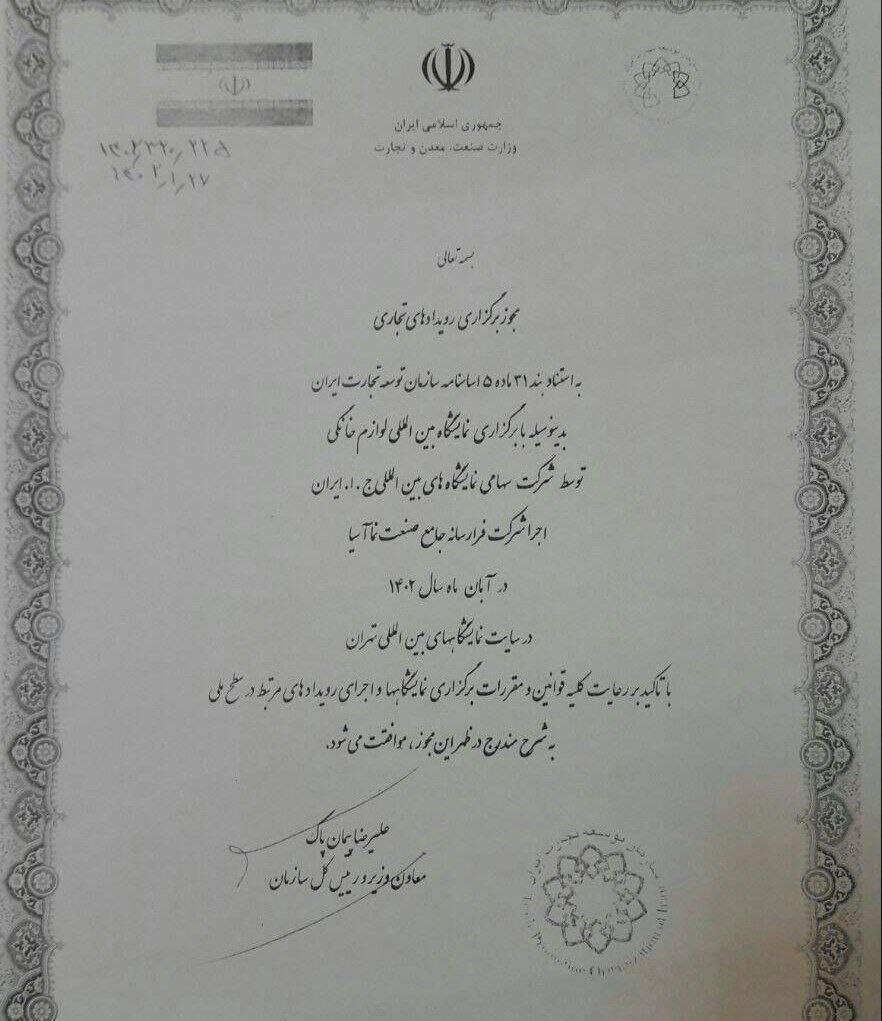 جمهوری اسلامی ایران
وزارت صنعت، معدن و تجارت
۱۴۰۲/۱/۲۷
بسمه تعالی
مجوز برگزاری رویدادهای تجاری
به استناد بند ۳۱ ماده ۵ اساسنامه سازمان توسعه تجارت ایران
بدینوسیله با برگزاری نمایشگاه بین المللی لوازم خانگی
توسط شرکت سهامی نمایشگاه های بین المللی ج.ا.ایران
اجرا شرکت فرارسانه جامع صنعت نما آسیا
در آبان ماه سال ۱۴۰۲
در سایت نمایشگاههای بین المللی تهران
با تاکید بر رعایت کلیه قوانین و مقررات برگزاری نمایشگاهها و اجرای رویدادهای مرتبط در سطح ملی
به شرح مندرج در ظهر این مجوز، موافقت می شود.
علیرضا پیمان پاک
معاون وزیر و رییس کل سازمان
سازمان توسعه تجارت ایران
Trade Promotion Organization of Iran